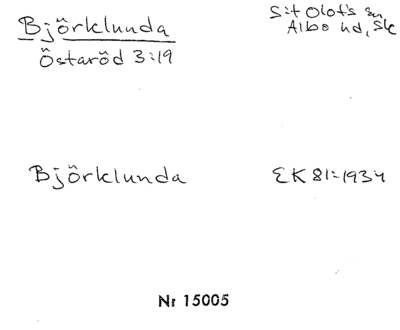 Björklunda
Östaröd 3:19
S:t Olofs sn
Albo hd, Sk
Björklunda
EK 81:1934
Nr 15005